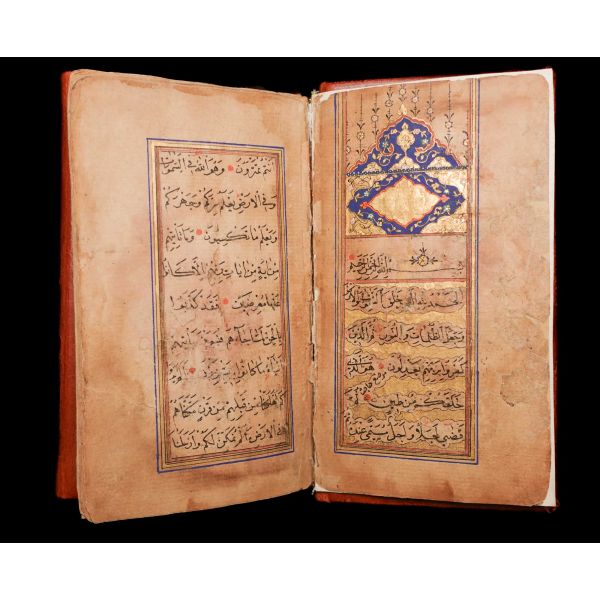 بسم الله الرحمن الرحيم
الحمد لله الذي خلق السموات والارض
وجعل الظلمات والنور ثم الذين
كفروا بربهم يعدلون هو الذي
خلقكم من طين ثم
قضى اجلا واجل مسمى عنده
ثم انتم تمترون وهو الله في السموات
وفي الارض يعلم سركم وجهركم
ويعلم ما تكسبون وما تأتيهم
من اية من ايات ربهم الا كانوا
عنها معرضين فقد كذبوا
بالحق لما جاءهم فسوف يأتيهم
انباء ما كانوا به يستهزؤن الم يروا
كم اهلكنا من قبلهم من قرن مكناهم
في الارض ما لم نمكن لكم وارسلنا